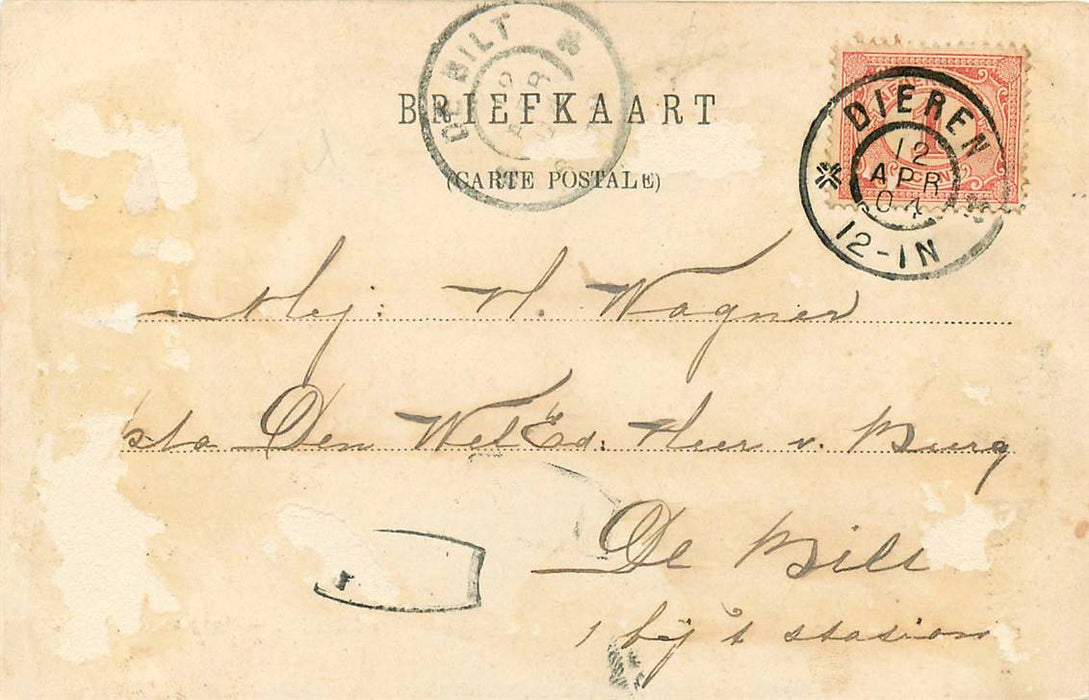 DE BILT
BRIEFKAART
(CARTE POSTALE)
DIEREN
12
APR
04
12-1N
1
Mej: H. Wagner
sta Den WelEd. Heer v. Burg
De Bilt
bij 't stasion